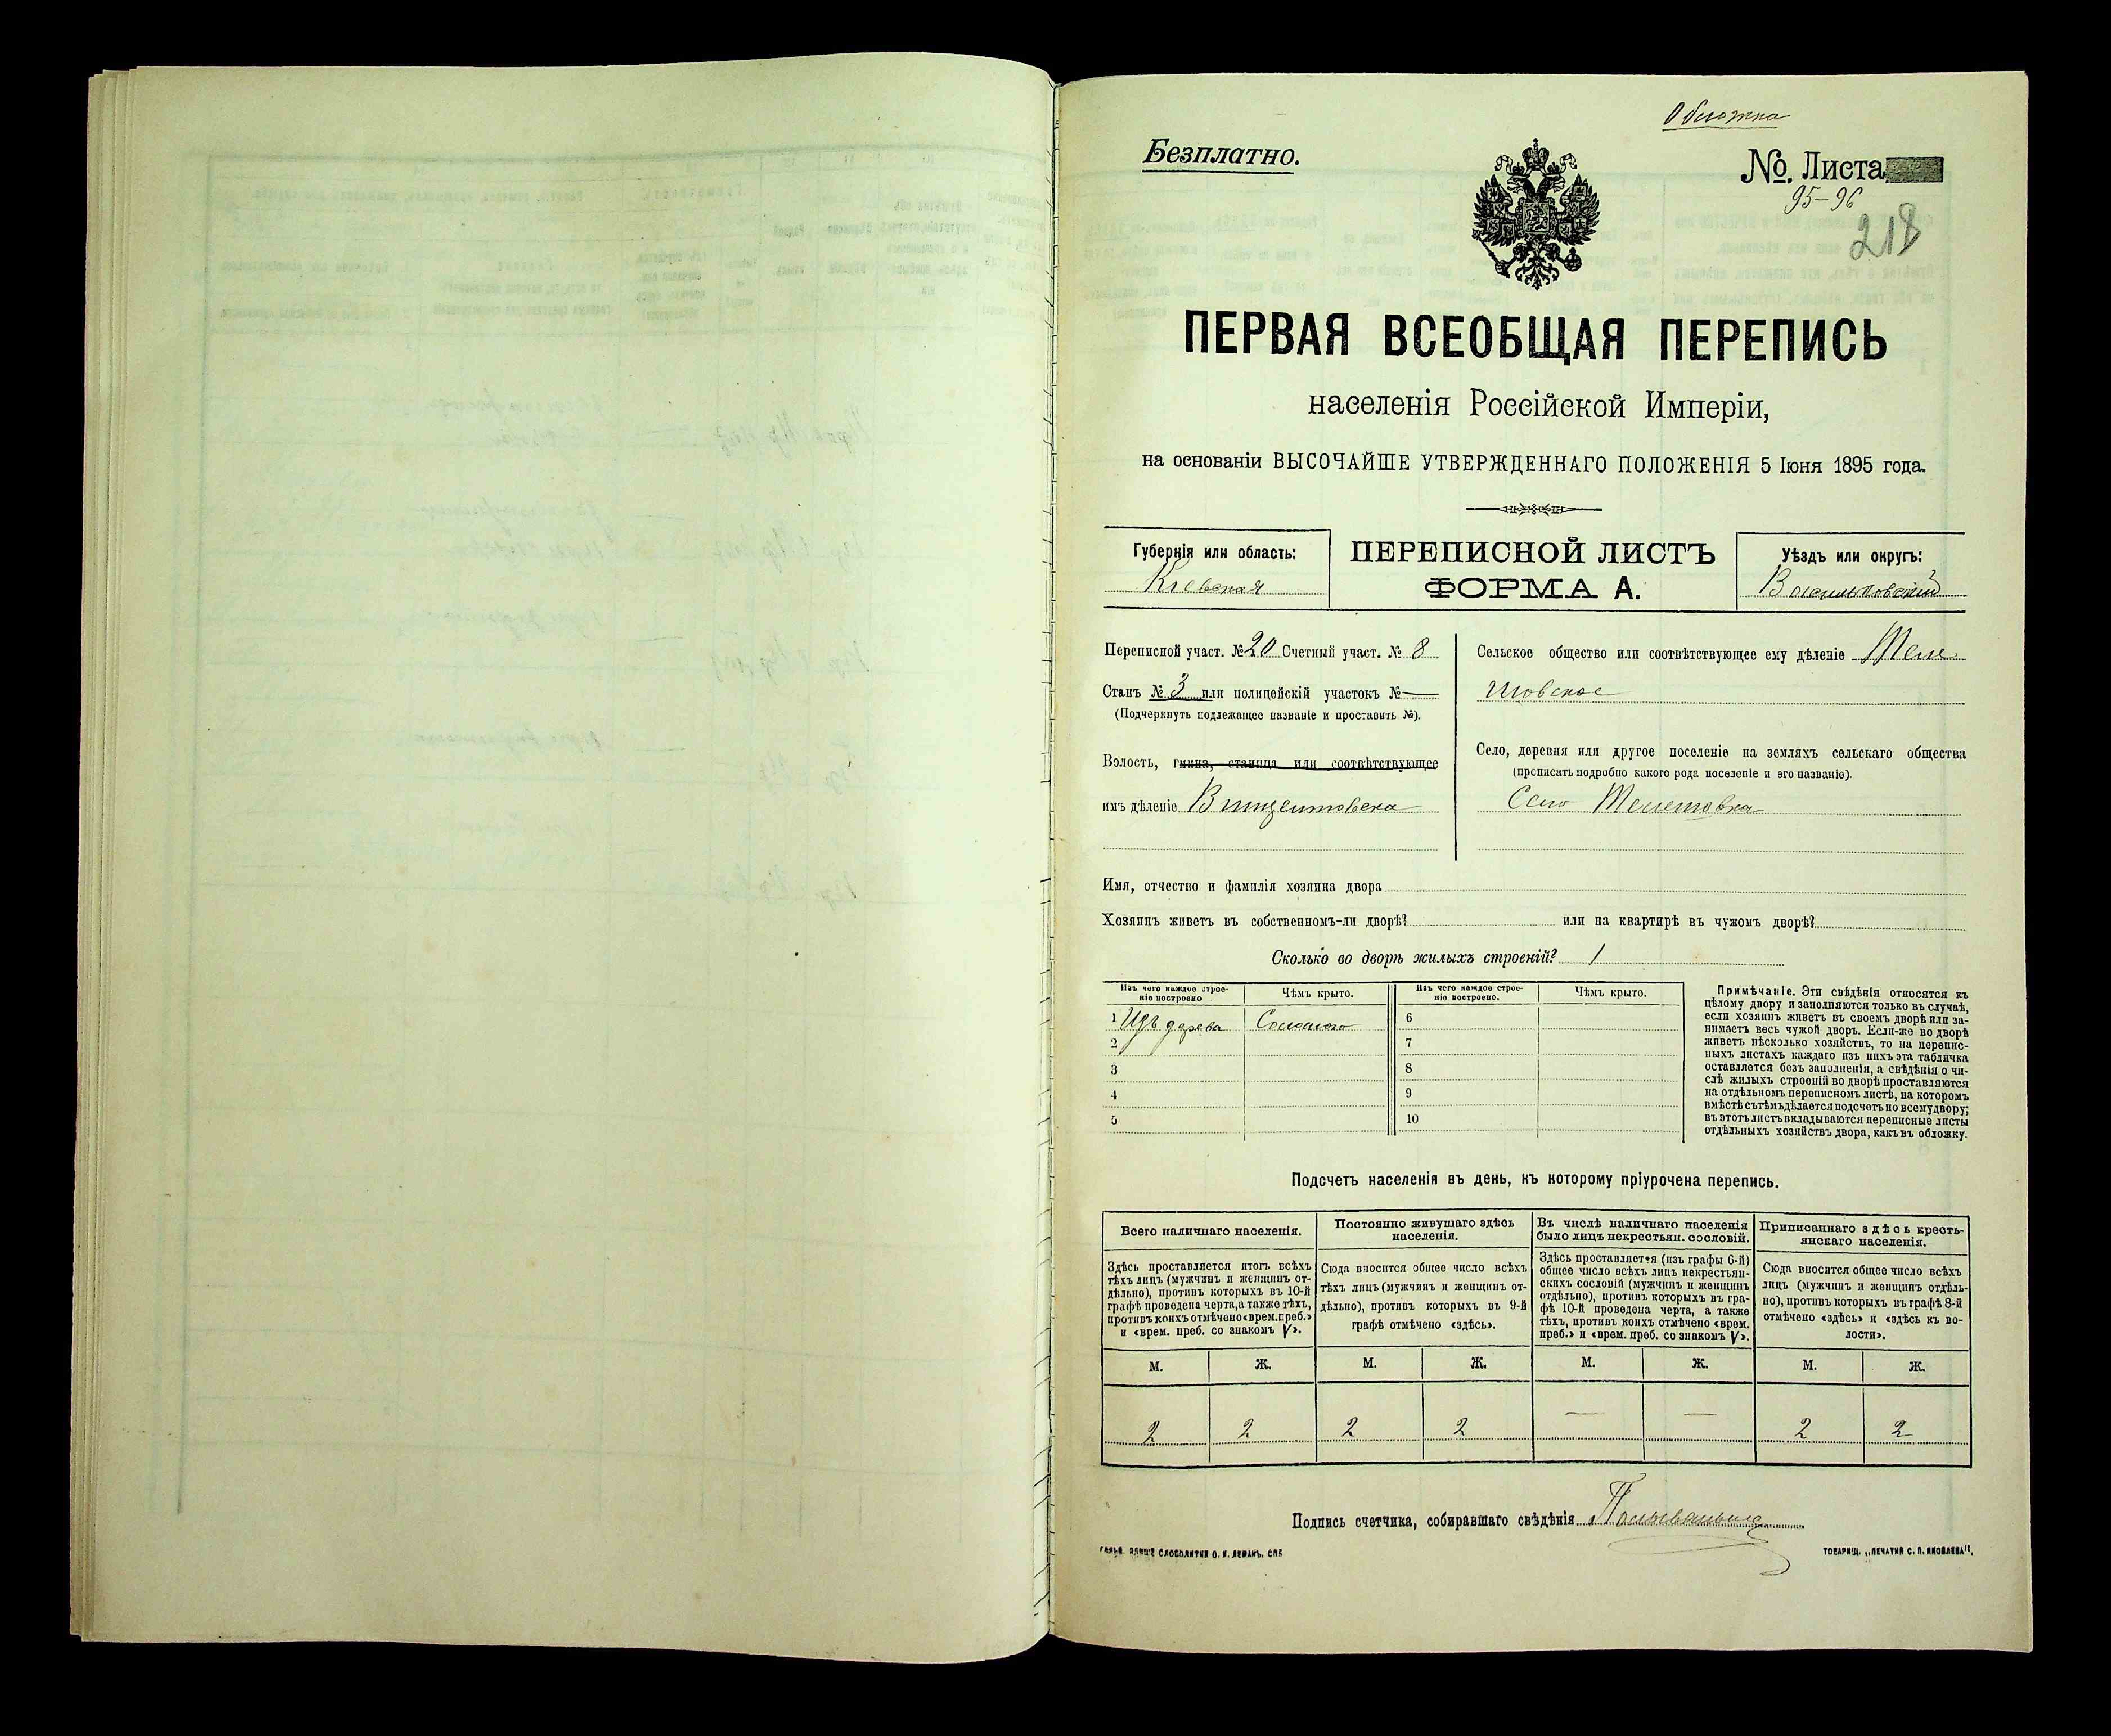 Обложка
Безплатно.
№. Листа
95-96
218
ПЕРВАЯ ВСЕОБЩАЯ ПЕРЕПИСЬ
населенія Россійской Имперіи,
на основаніи ВЫСОЧАЙШЕ УТВЕРЖДЕННАГО ПОЛОЖЕНІЯ 5 Іюня 1895 года.
Губернія или область:
Кіевская
ПЕРЕПИСНОЙ ЛИСТЪ
ФОРМА А.
Уѣздъ или округъ:
Васильковскій
Переписной участ. № 20 Счетный участ. № 8
Станъ № 3 или полицейскій участокъ № —
(Подчеркнуть подлежащее названіе и проставить №).
Волость, гмина, станица или соотвѣтствующее
имъ дѣленіе Винцентовска
Сельское общество или соотвѣтствующее ему дѣленіе Теле
шовское
Село, деревня или другое поселеніе на земляхъ сельскаго общества
(прописать подробно какого рода поселеніе и его названіе).
Село Телешовка
Имя, отчество и фамилія хозяина двора
Хозяинъ живетъ въ собственномъ-ли дворѣ? или на квартирѣ въ чужомъ дворѣ?
Сколько во дворѣ жилыхъ строеній? 1
Изъ чего каждое строе-
ніе построено
Чѣмъ крыто.
Изъ чего каждое строе-
ніе построено.
Чѣмъ крыто.
1 Изъ дерева Соломою 6
2 7
3 8
4 9
5 10
Примѣчаніе. Эти свѣдѣнія относятся къ
цѣлому двору и заполняются только въ случаѣ,
если хозяинъ живетъ въ своемъ дворѣ или за-
нимаетъ весь чужой дворъ. Если-же во дворѣ
живетъ нѣсколько хозяйствъ, то на перепис-
ныхъ листахъ каждаго изъ нихъ эта табличка
оставляется безъ заполненія, а свѣдѣнія о чи-
слѣ жилыхъ строеній во дворѣ проставляются
на отдѣльномъ переписномъ листѣ, на которомъ
вмѣстѣ съ тѣмъ дѣлается подсчетъ по всему двору;
въ этотъ листъ вкладываются переписные листы
отдѣльныхъ хозяйствъ двора, какъ въ обложку.
Подсчетъ населенія въ день, къ которому пріурочена перепись.
Всего наличнаго населенія.
Здѣсь проставляется итогъ всѣхъ
тѣхъ лицъ (мужчинъ и женщинъ от-
дѣльно), противъ которыхъ въ 10-й
графѣ проведена черта, а также тѣхъ,
противъ коихъ отмѣчено «врем. преб.»
и «врем. преб. со знакомъ V».
Постоянно живущаго здѣсь
населенія.
Сюда вносится общее число всѣхъ
тѣхъ лицъ (мужчинъ и женщинъ от-
дѣльно), противъ которыхъ въ 9-й
графѣ отмѣчено «здѣсь».
Въ числѣ наличнаго населенія
было лицъ некрестьян. сословій.
Здѣсь проставляется (изъ графы 6-й)
общее число всѣхъ лицъ некрестьян-
скихъ сословій (мужчинъ и женщинъ
отдѣльно), противъ которыхъ въ гра-
фѣ 10-й проведена черта, а также
тѣхъ, противъ коихъ отмѣчено «врем.
преб.» и «врем. преб. со знакомъ V».
Приписаннаго здѣсь кресть-
янскаго населенія.
Сюда вносится общее число всѣхъ
лицъ (мужчинъ и женщинъ отдѣль-
но), противъ которыхъ въ графѣ 8-й
отмѣчено «здѣсь» и «здѣсь къ во-
лости».
М. Ж. М. Ж. М. Ж. М. Ж.
2 2 2 2 — — 2 2
Подпись счетчика, собиравшаго свѣдѣнія
СЛОВОЛИТНИ О. И. ЛЕМАНЪ, СПБ
ТОВАРИЩ. „ПЕЧАТНЯ С. П. ЯКОВЛЕВА".